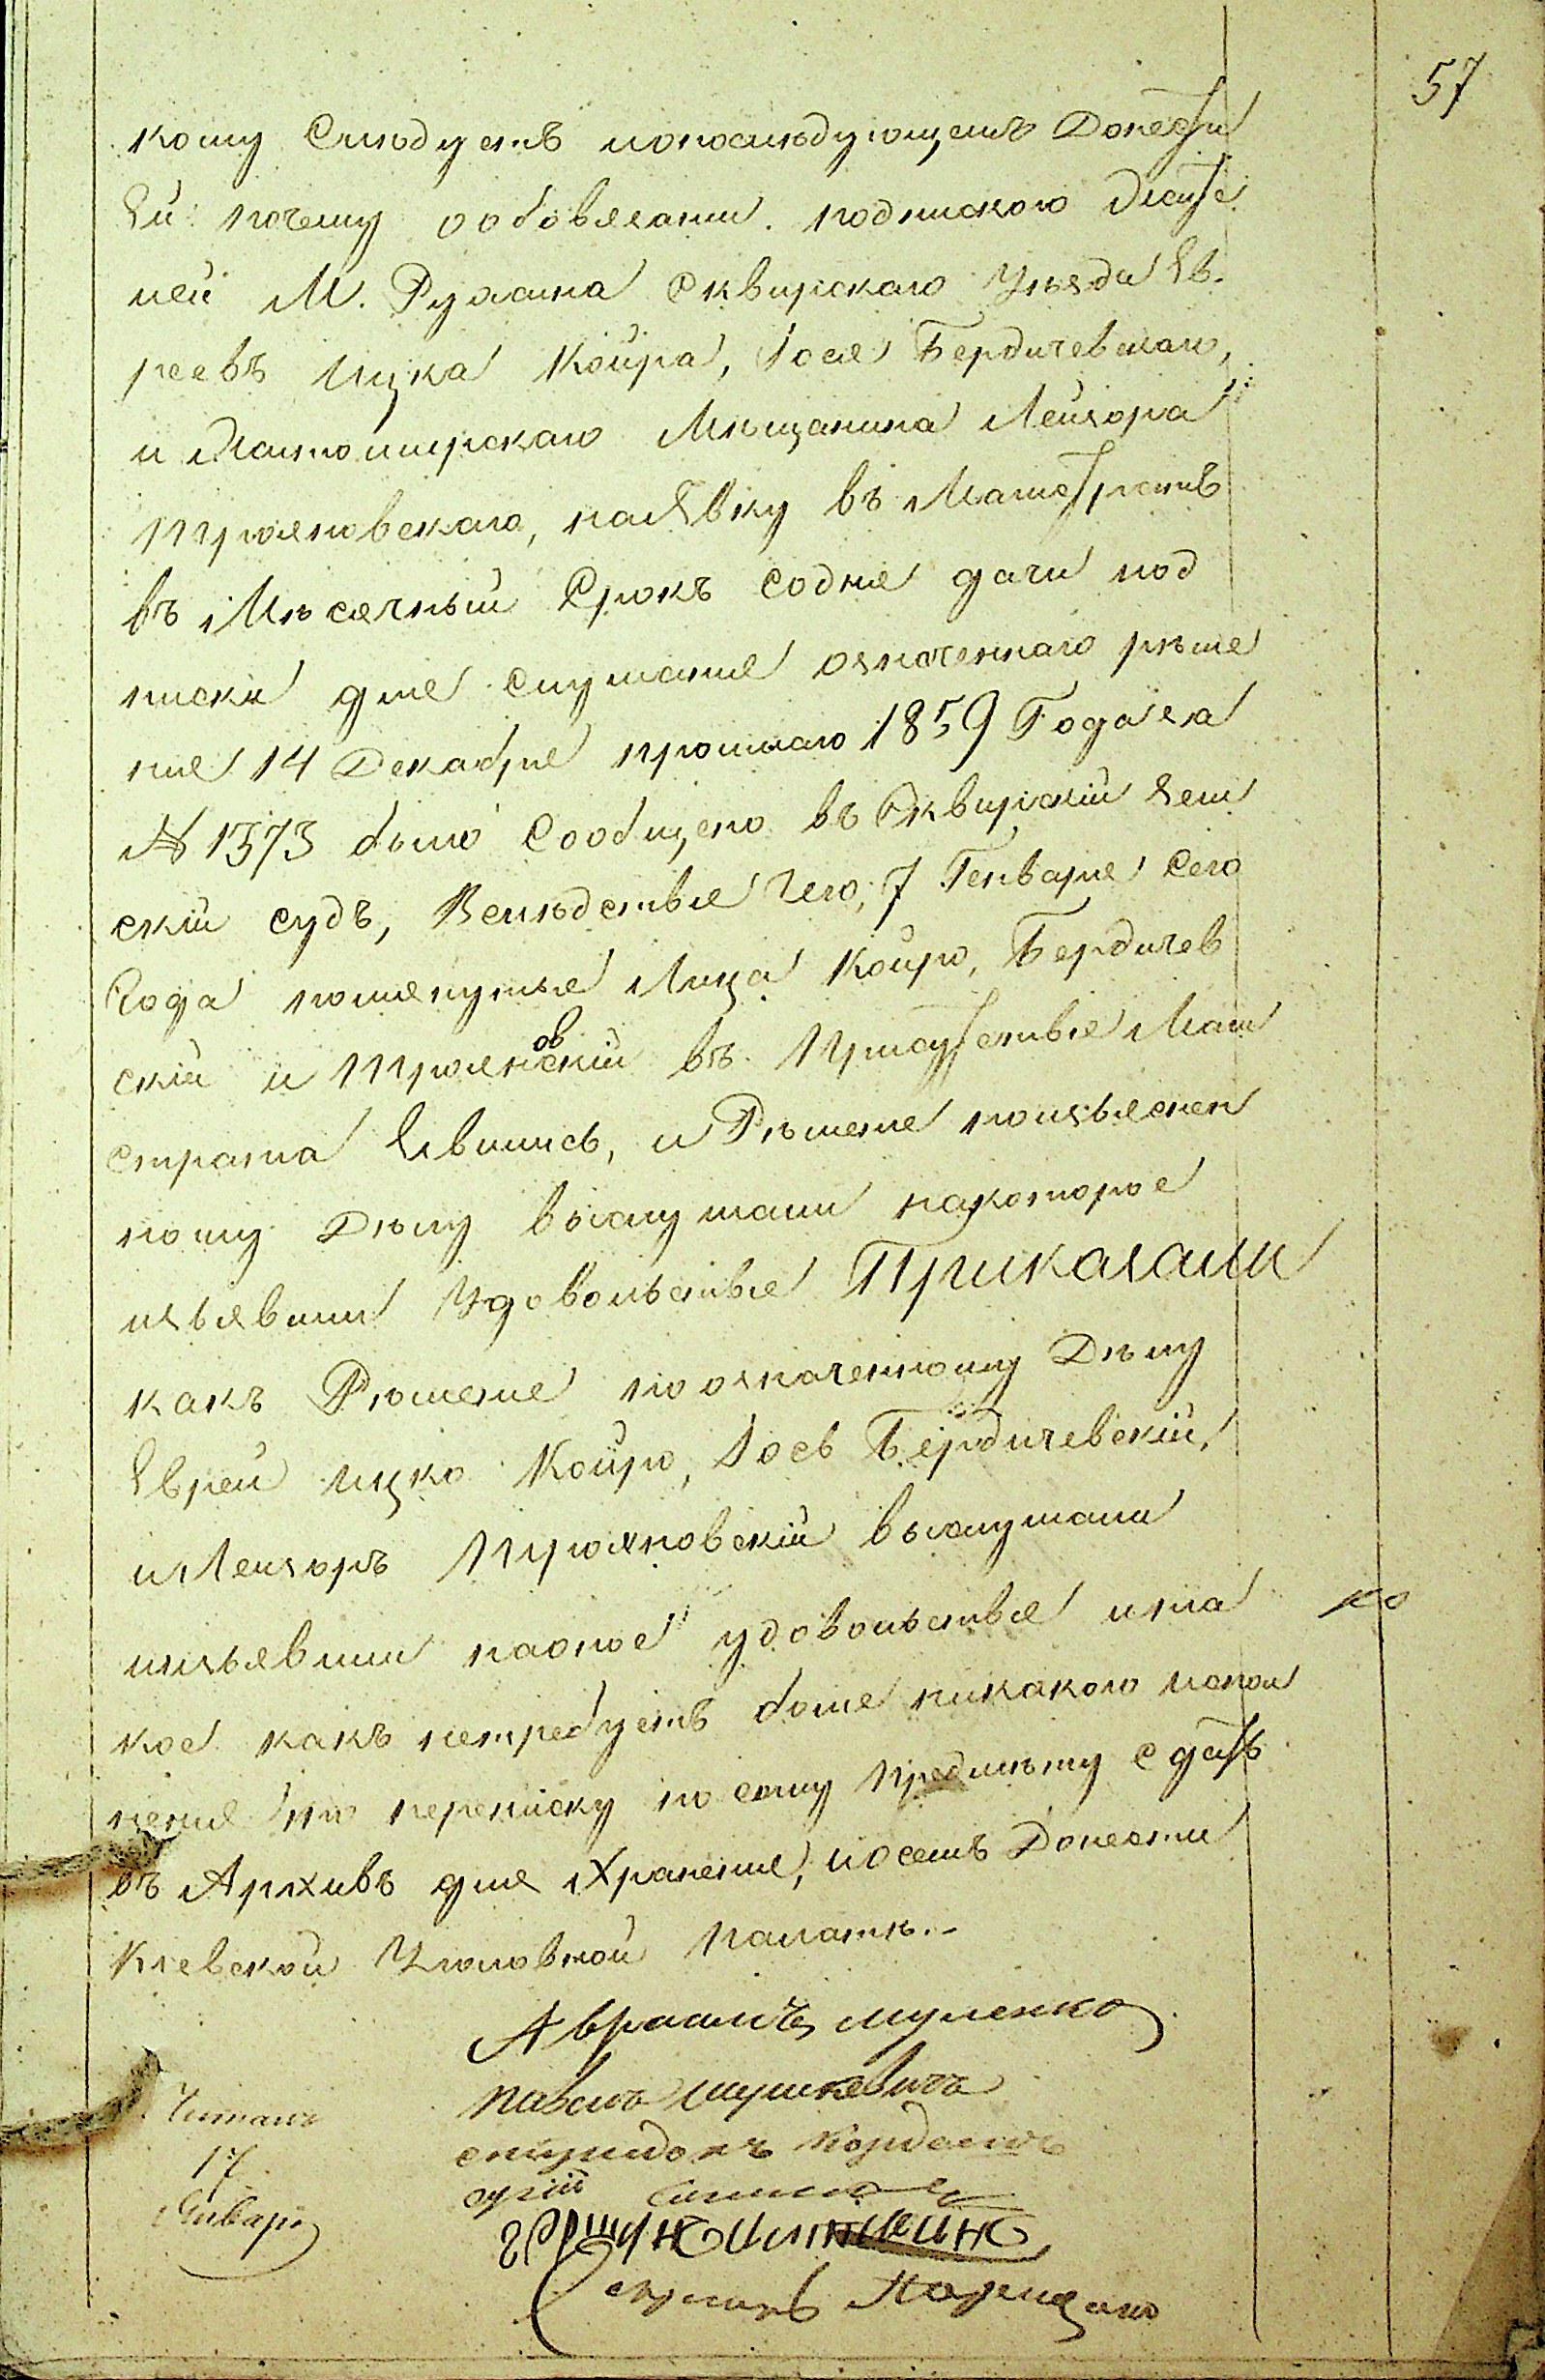 57
кому Слѣдуетъ ипопослѣдующемъ Донести
Ей: почему ообовязаніи. подпискою Жите
лей М. Ружина Сквирскаго Уѣзда Ев.
реевъ Ицка Койра, Іося Бердичевскаго,
и Житомирскаго Мѣщанина Лейзора
Трояновскаго, наЯвку въ Магистратъ
въ Мѣсячный Срокъ Содня дачи под
писки для Слушанія означеннаго рѣше
нія 14 Декабря прошлаго 1859 Года за
№ 1373 было Сообщено въ Сквирскій Зем
скій судъ, Вслѣдствіе Чего, 7 Генваря Сего
Года помянутые Лица Койро, Бердичев
скій и Трояновскій въ Присутствіе Маги
страта Явились, и Рѣшеніе поизъяснен
ному Дѣлу выслушали накоторое
изъявили Удовольствіе Приказали
какъ Рѣшеніе поозначенному Дѣлу
Евреи Ицко Койро, Іось Бердичевскій,
иЛейзоръ Трояновскій выслушали
иизъявили наоное удовольствіе ита
кое какъ нетребуетъ болѣе никакого испол
ненія то переписку по сему предмѣту сдать
въ Архивъ для Храненія, иосемъ Донести
Кіевской Уголовной Палатѣ.-
Авраамъ
Павелъ
спиридонъ
Читалъ
17
Января